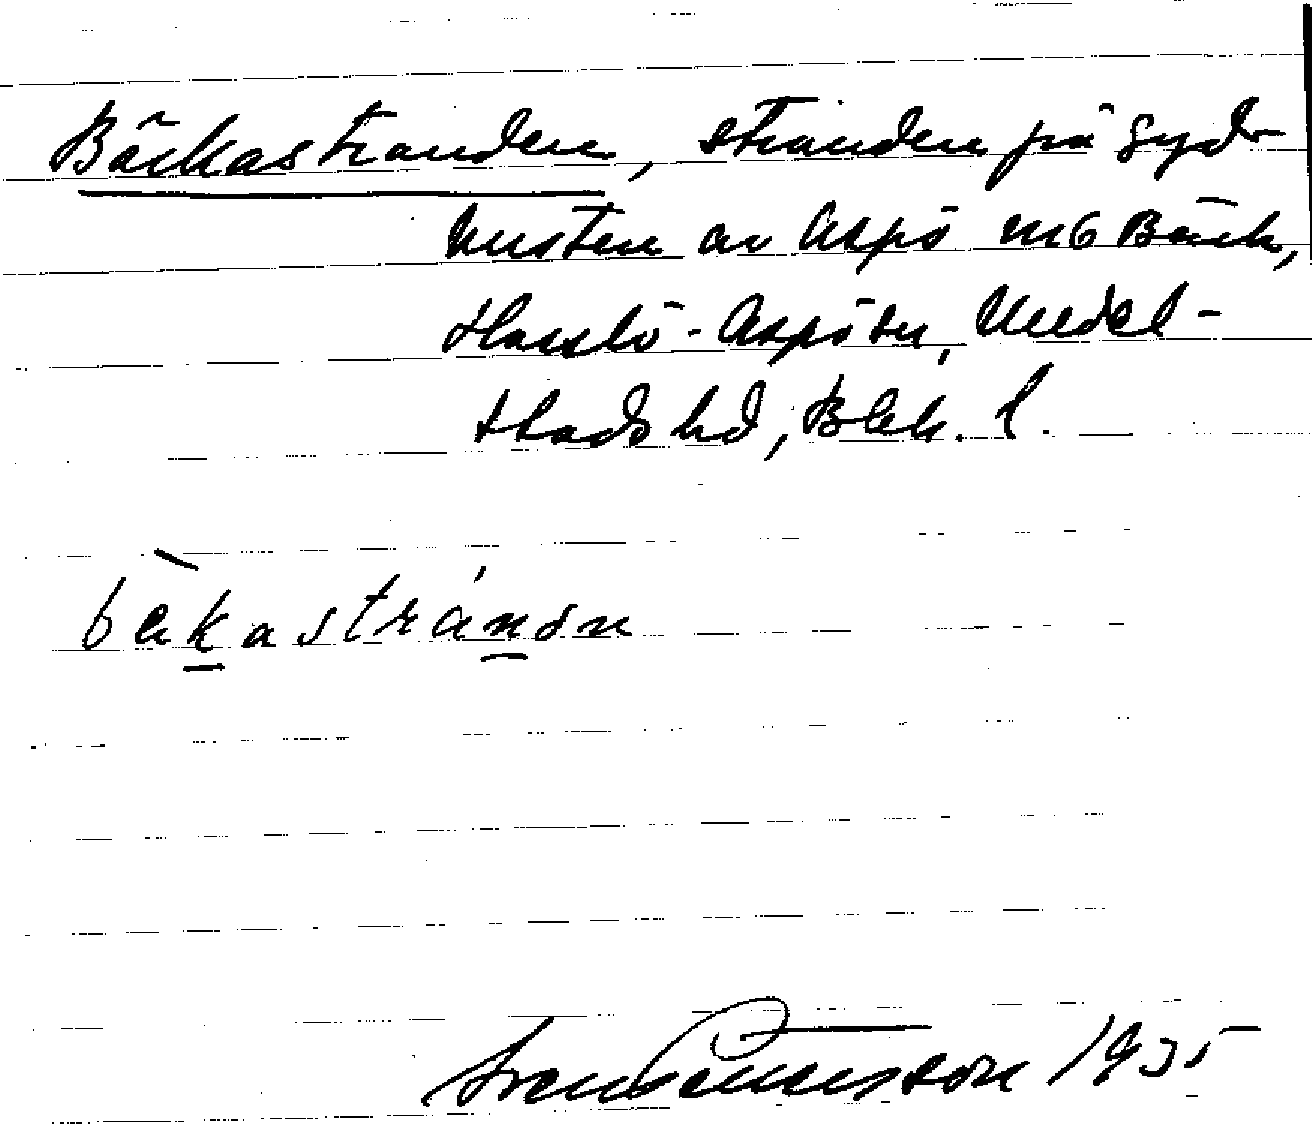 Bäckastranden, stranden på Syd-
kusten av Aspö m6 Bäck,
Hasslö-Aspö sn, Medel-
stads hd, Blek. l.
bäkastránən
Sven Benson 1935